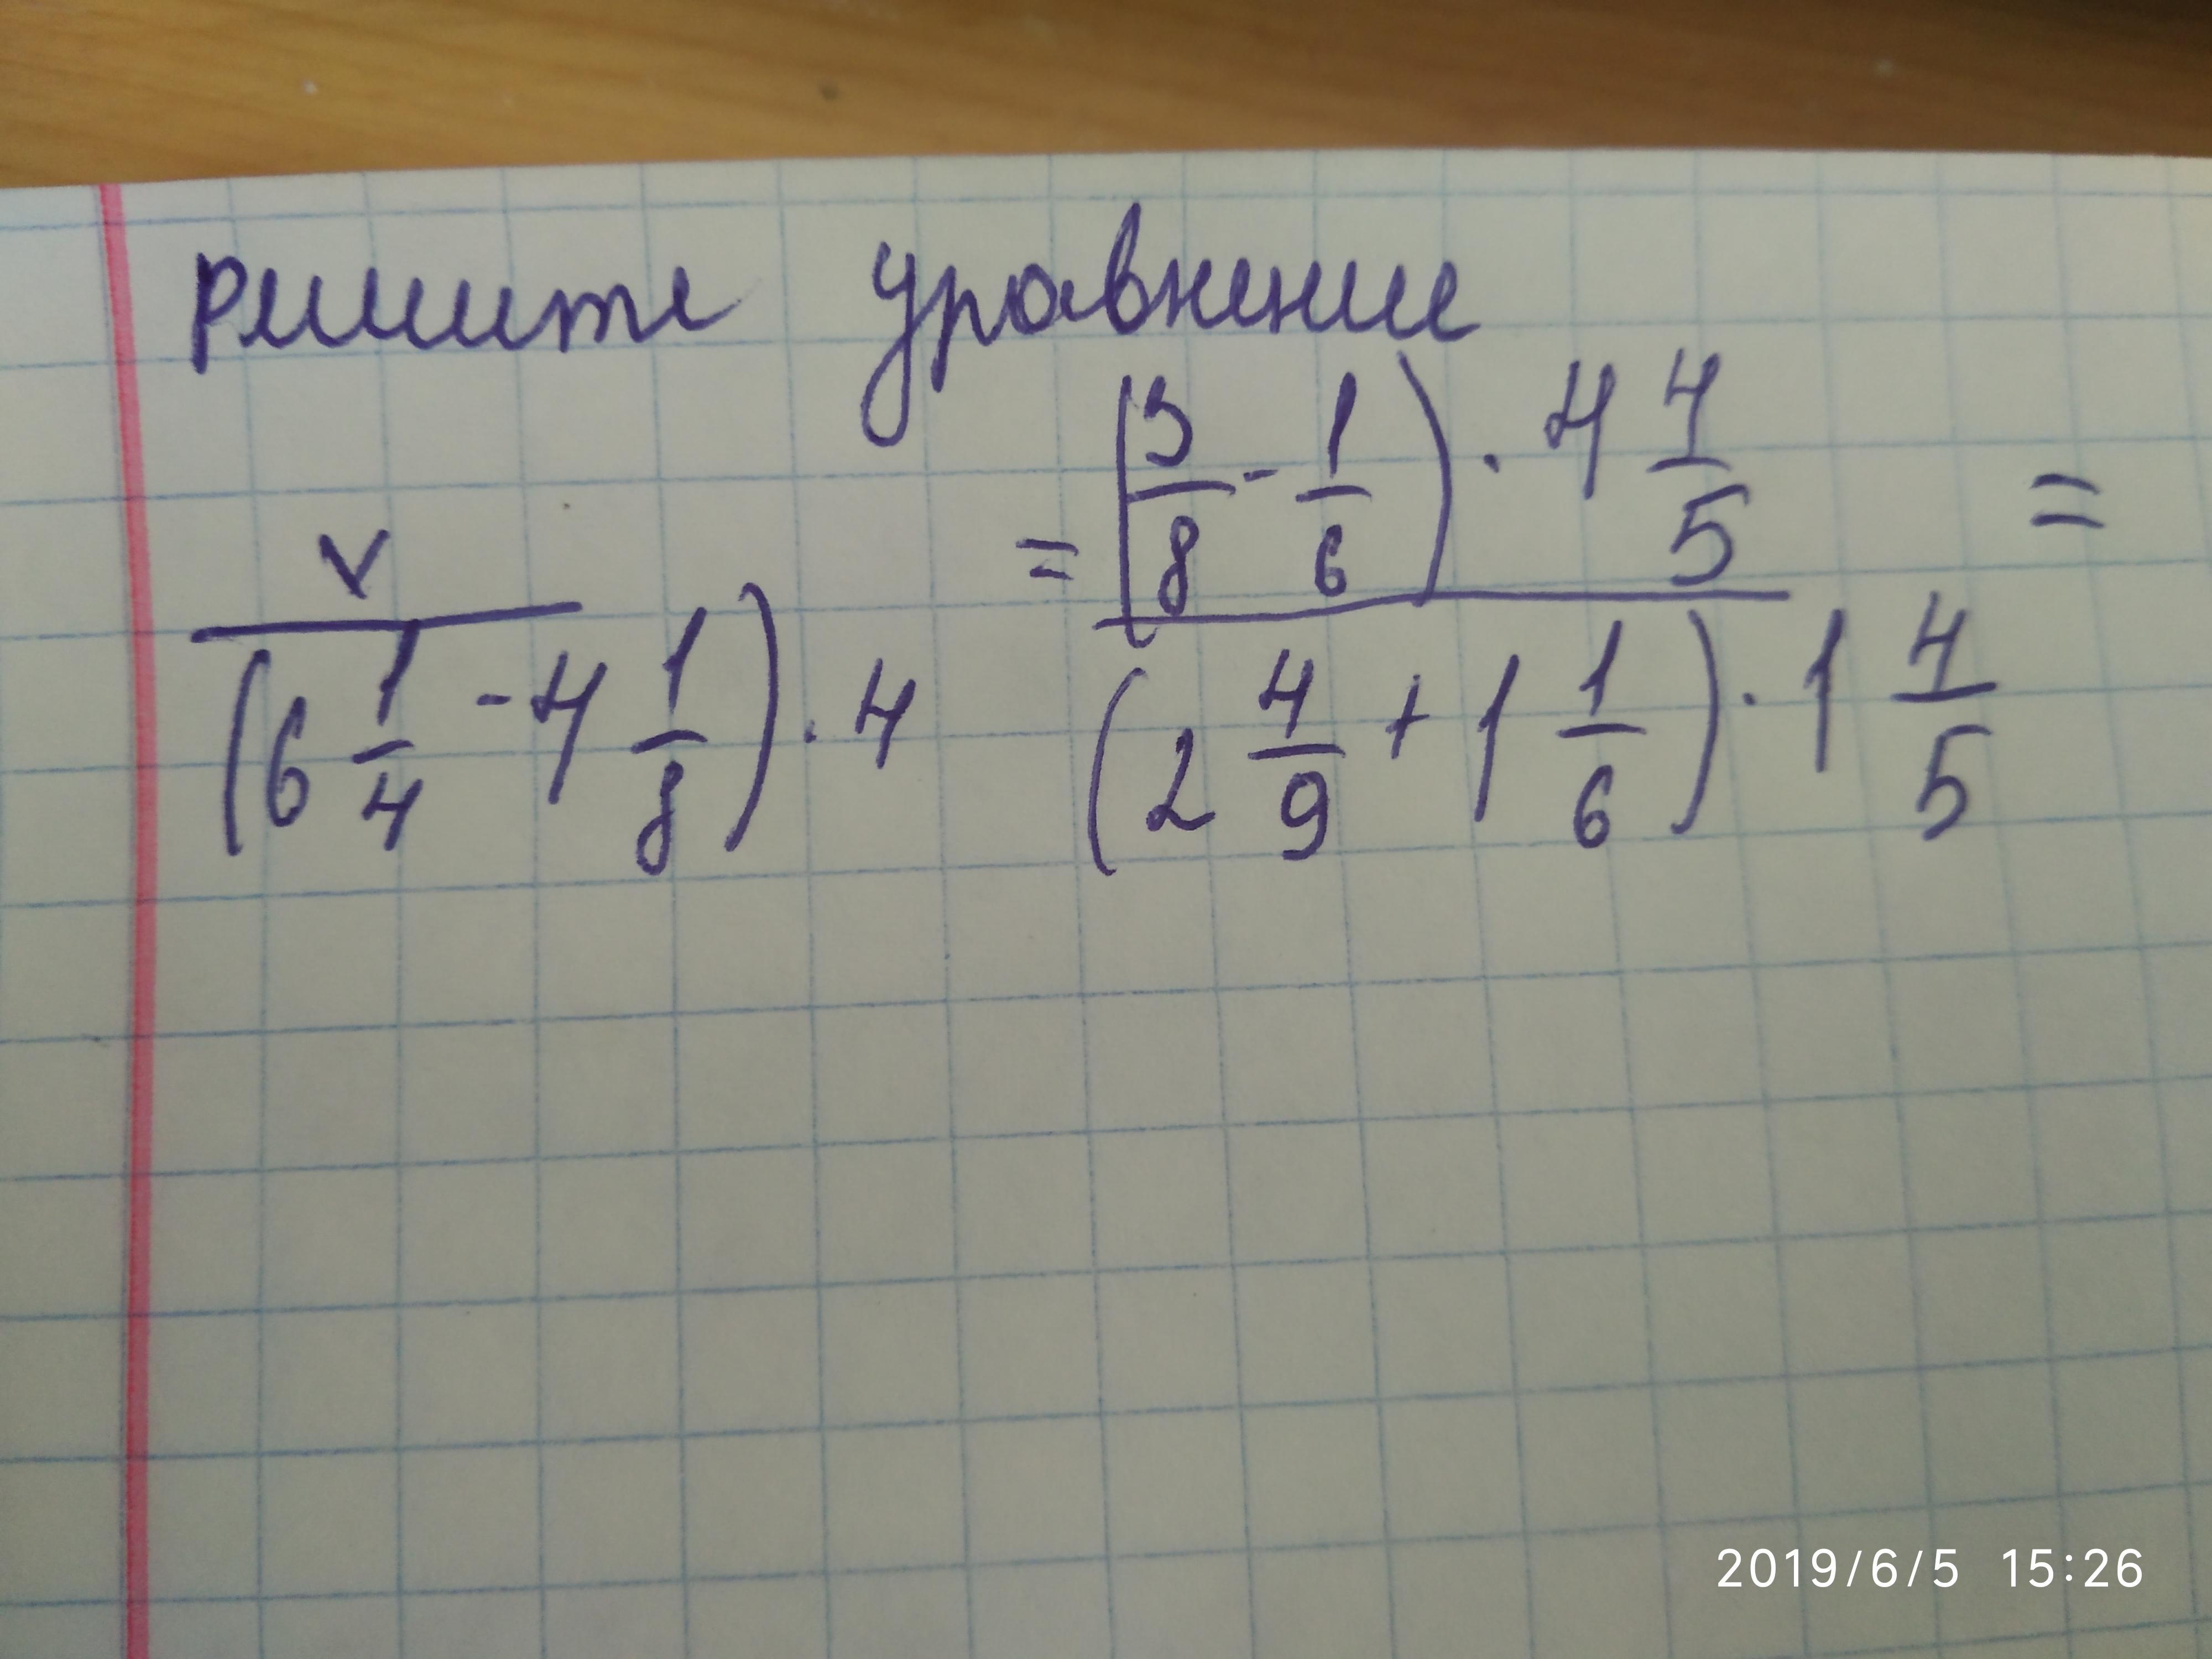 решите уравнение
v/((6 1/4 - 4 1/8) · 4) = ((5/8 - 1/6) · 4 4/5)/((2 4/9 + 1 1/6) · 1 4/5) =
2019/6/5 15:26